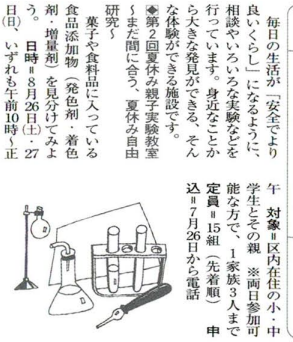 毎日の生活が「安全でより
良いくらし」になるように、
相談やいろいろな実験などを
行っています。身近なことか
ら大きな発見ができる、そん
な体験ができる施設です。
◆第2回夏休み親子実験教室
～まだ間に合う、夏休み自由
研究～
菓子や食料品に入っている
食品添加物（発色剤・着色
剤・増量剤）を見分けてみよ
う。 日時＝8月26日(土)・27
日(日)、いずれも午前10時～正
午 対象＝区内在住の小・中
学生とその親 ※両日参加可
能な方で、1家族3人まで
定員＝15組（先着順） 申
込＝7月26日から電話